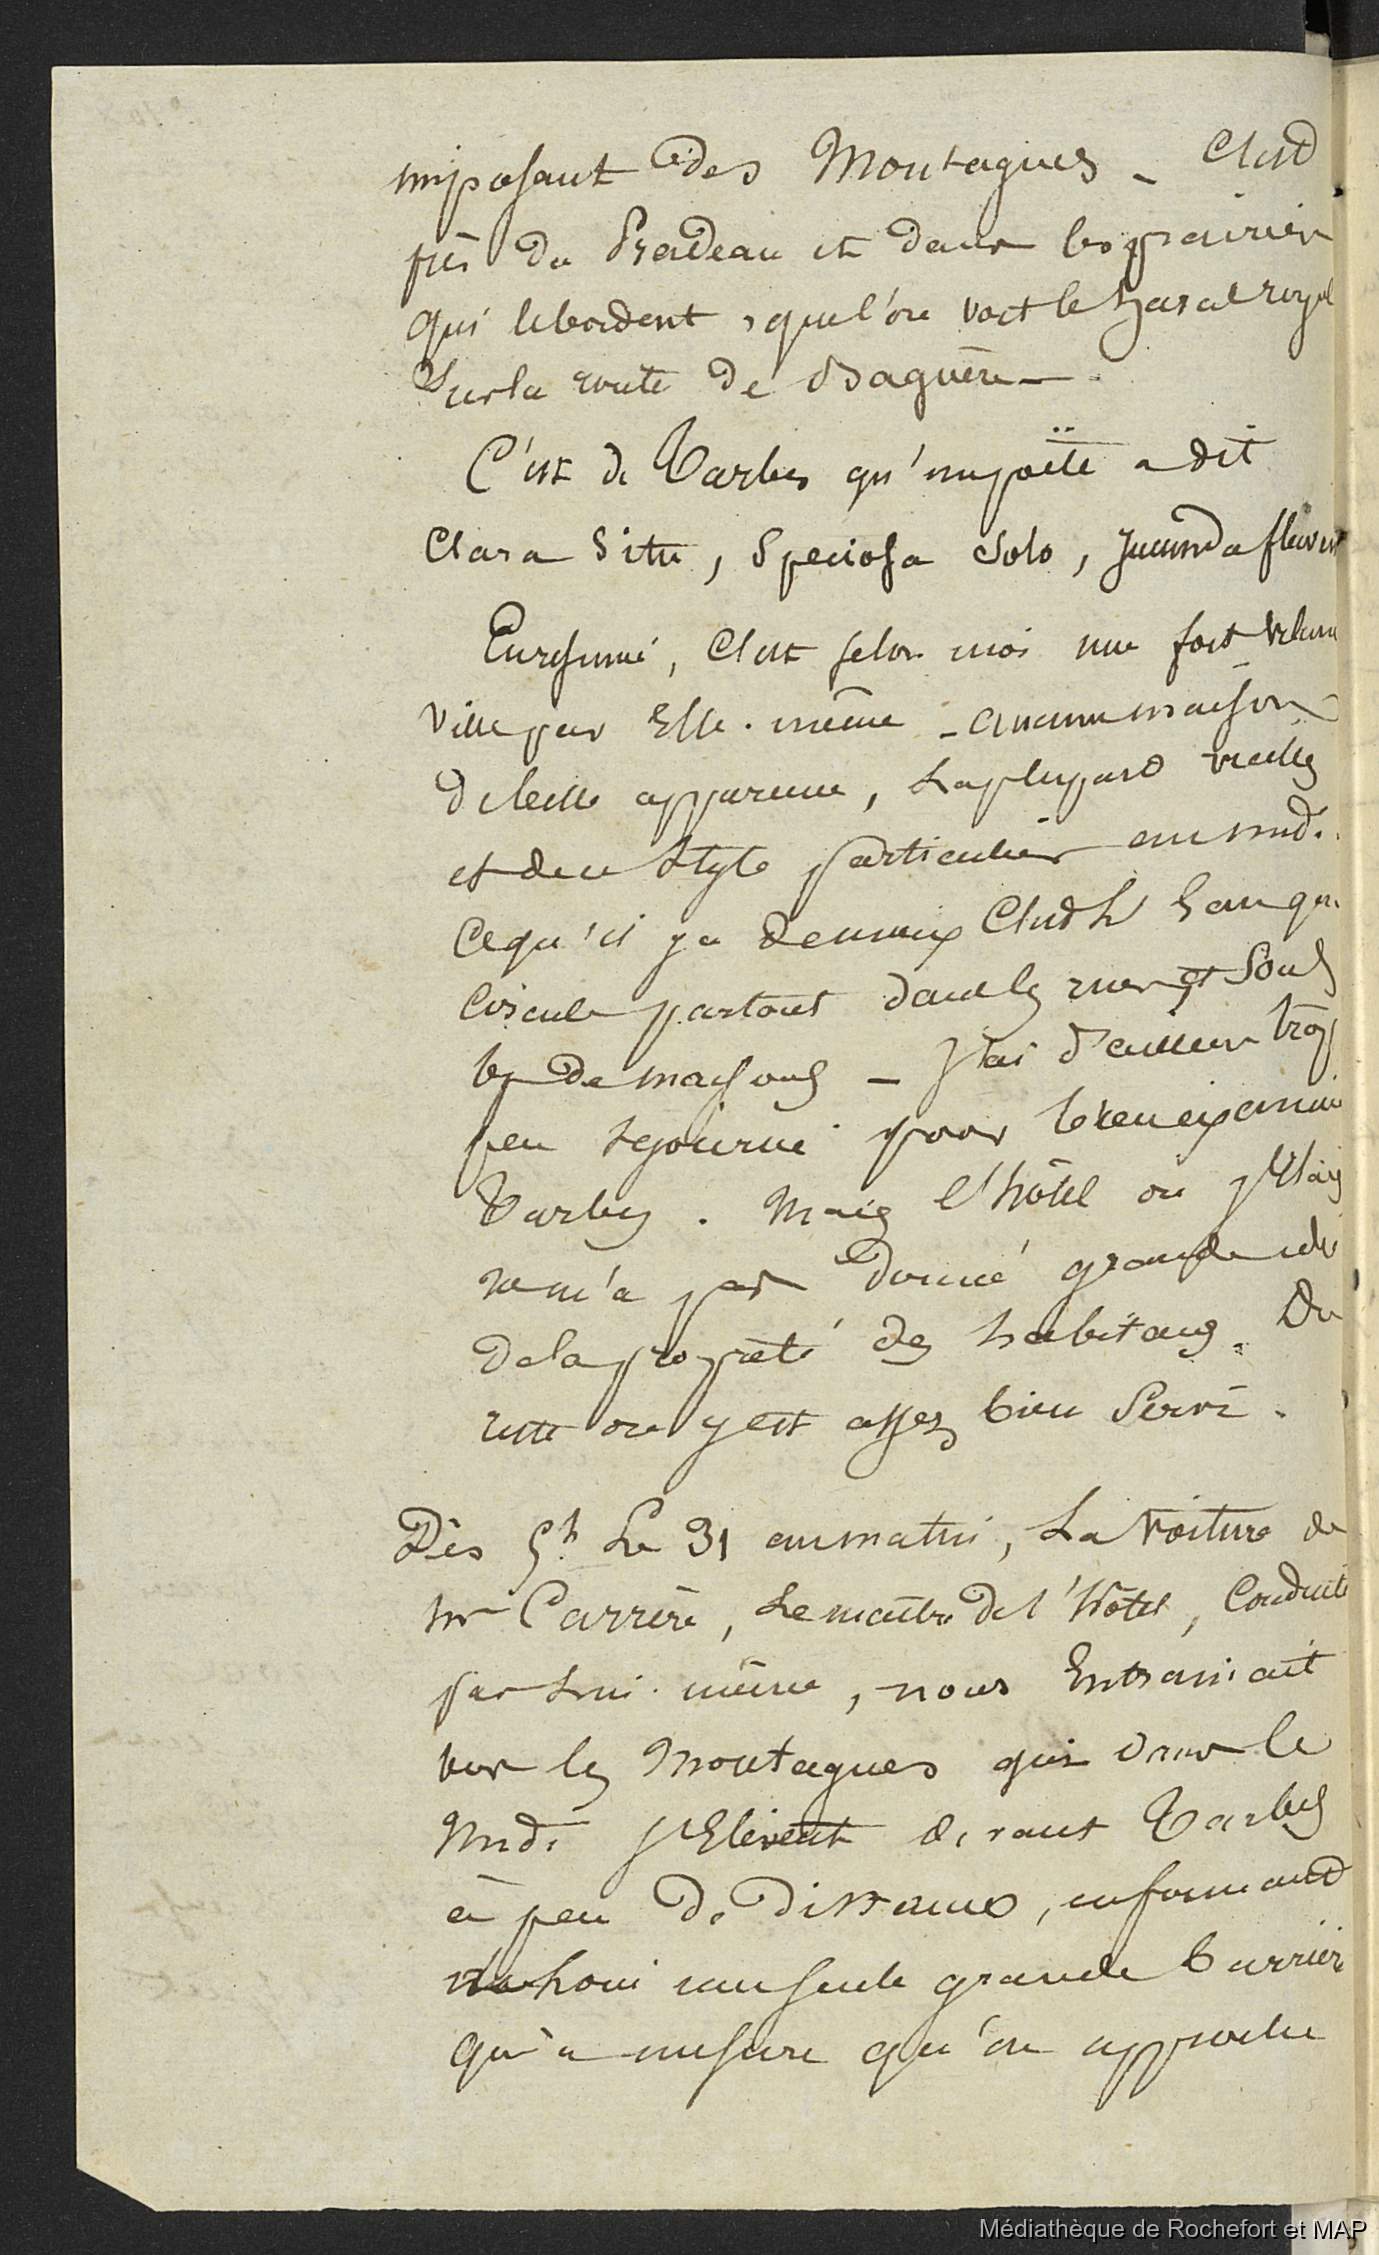 imposant des Montagnes - C'est
près du Pradeau et dans les prairies
qui le bordent, que l'on voit le haras royal
Sur la route de Bagnère —
C'est de Tarbes qu'un poëte a dit
Clara Situ, Speciosa Solo, Jucunda fluvio
En résumé, C'est selon moi une fort vilaine
Ville par Elle-même - aucune maison
de belle apparence, La plupart vieilles
et de ce Style particulier au midi.
Ce qu'il y a de mieux C'est L'eau qui
Circule partout dans les rues et Sous
les maisons - J'ai d'ailleurs trop
peu Séjourné pour bien examiner
Tarbes. Mais l'hôtel où j'étais
ne m'a pas donné grande idée
de la propreté des habitans. Du
reste on y est assez bien Servi.
Dès 5h. Le 31 au matin, La voiture de
Mr Carrère, Le maître de l'hôtel, Conduite
par Lui-même, nous Entrainait
vers les Montagnes qui dans le
Midi S'Elèvent devant Tarbes
à peu de distance, en formant
une seule grande barrière
qu'à mesure qu'on approche
Médiathèque de Rochefort et MAP